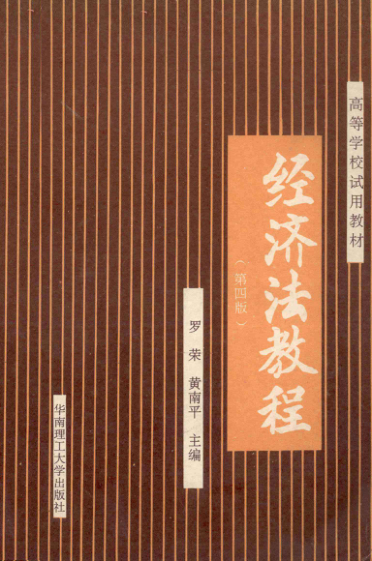 高等学校试用教材
经济法教程
（第四版）
罗荣 黄南平 主编
华南理工大学出版社